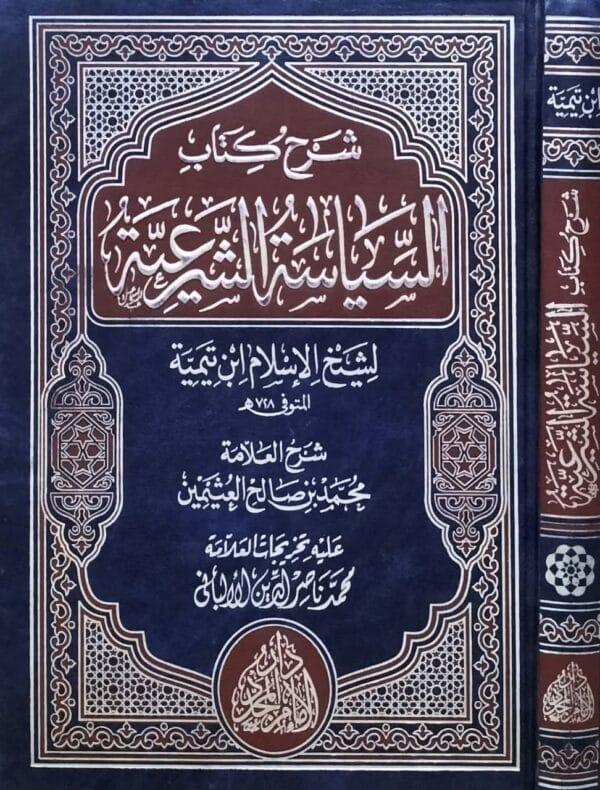 شرح كتاب
السياسة الشرعية
لشيخ الإسلام ابن تيمية
المتوفى ٧٢٨ هـ
شرح العلامة
محمد بن صالح العثيمين
عليه تخريجات العلامة
محمد ناصر الدين الألباني
دار
الإمام المجدد
ابن تيمية
شرح كتاب
السياسة الشرعية
دار
الإمام المجدد